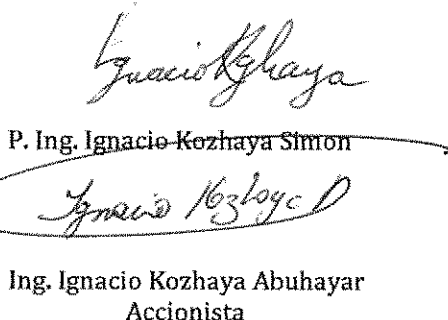 Ignacio Kozhaya
P. Ing. Ignacio Kozhaya Simon
Ignacio Kozhaya
Ing. Ignacio Kozhaya Abuhayar
Accionista